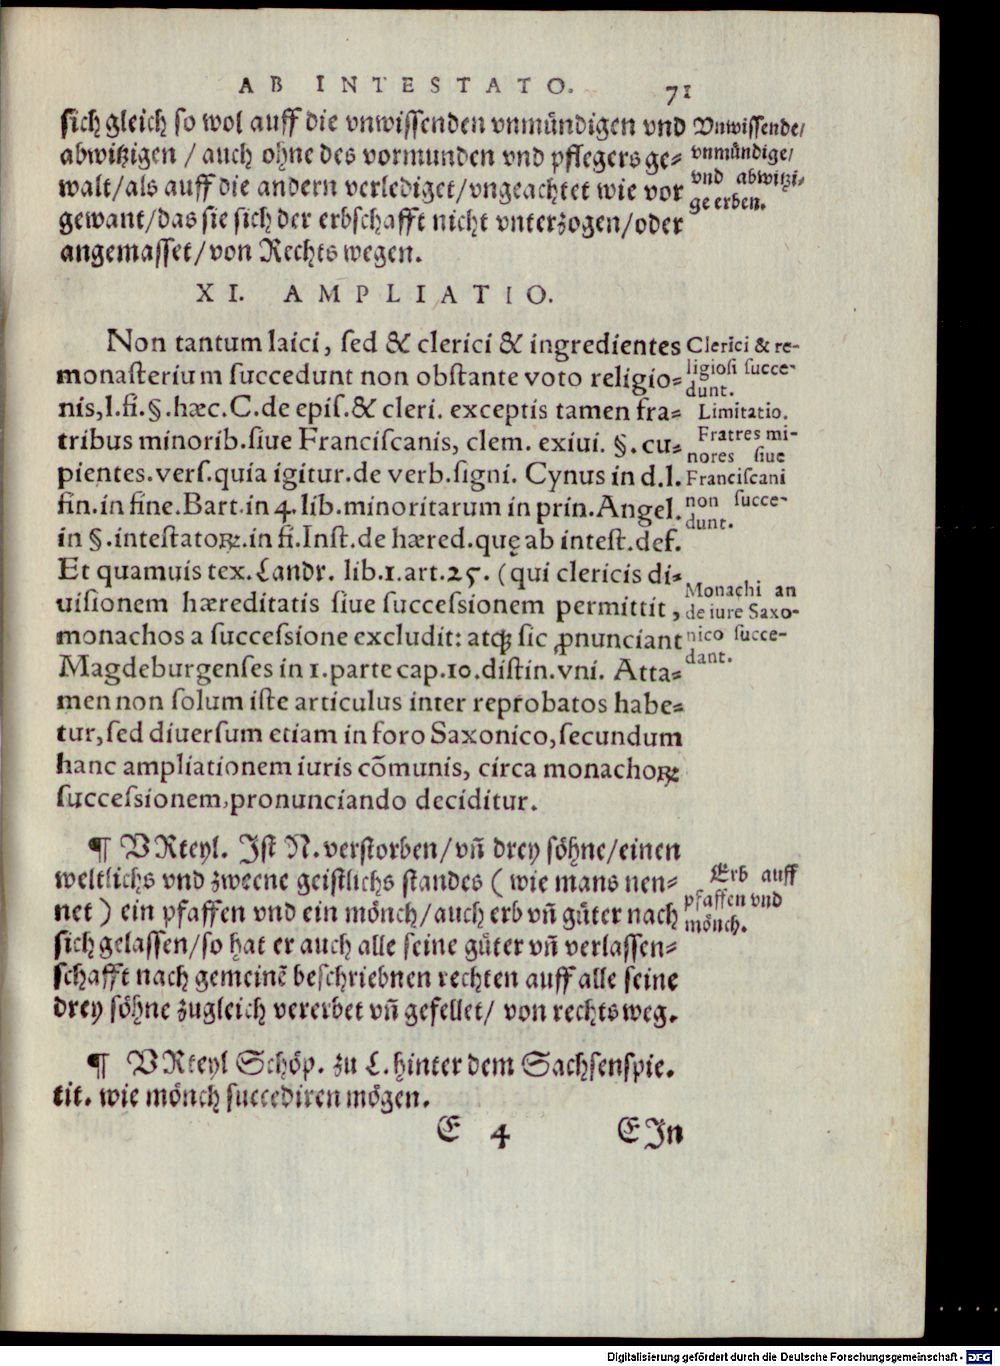 AB INTESTATO. 71
sich gleich so wol auff die vnwissenden vnmündigen vnd
abwitzigen / auch ohne des vormunden vnd pflegers ge=
walt/als auff die andern verlediget/vngeachtet wie vor
gewant/das sie sich der erbschafft nicht vnterzogen/oder
angemasset/von Rechts wegen.
Vnwissende/
vnmündige/
vnd abwitzi-
ge erben.
XI. AMPLIATIO.
Non tantum laici, sed & clerici & ingredientes
monasterium succedunt non obstante voto religio=
nis,l.fi.§.hæc.C.de epis.& cleri. exceptis tamen fra=
tribus minorib.siue Franciscanis, clem. exiui. §.cu=
pientes.vers.quia igitur.de verb.signi. Cynus in d.l.
fin.in fine.Bart.in 4.lib.minoritarum in prin.Angel.
in §.intestatoꝝ.in fi.Inst.de hæred.quę ab intest.def.
Et quamuis tex.Landr. lib.1.art.25. (qui clericis di=
uisionem hæreditatis siue successionem permittit,
monachos a successione excludit: atqꝫ sic ꝓnunciant
Magdeburgenses in 1.parte cap.10.distin.vni. Atta=
men non solum iste articulus inter reprobatos habe=
tur,sed diuersum etiam in foro Saxonico,secundum
hanc ampliationem iuris cõmunis, circa monachoꝝ
successionem,pronunciando deciditur.
Clerici & re-
ligiosi succe-
dunt.
Limitatio.
Fratres mi-
nores siue
Franciscani
non succe-
dunt.
Monachi an
de iure Saxo-
nico succe-
dant.
¶ VRteyl. Ist N.verstorben/vñ drey söhne/einen
weltlichs vnd zweene geistlichs standes ( wie mans nen=
net ) ein pfaffen vnd ein mönch/auch erb vñ güter nach
sich gelassen/so hat er auch alle seine güter vñ verlassen=
schafft nach gemeinẽ beschriebnen rechten auff alle seine
drey söhne zugleich vererbet vñ gefellet/ von rechts weg.
Erb auff
pfaffen vnd
mönch.
¶ VRteyl Schöp. zu L.hinter dem Sachsenspie.
tit. wie mönch succediren mögen.
E 4 EIn
Digitalisierung gefördert durch die Deutsche Forschungsgemeinschaft - DFG